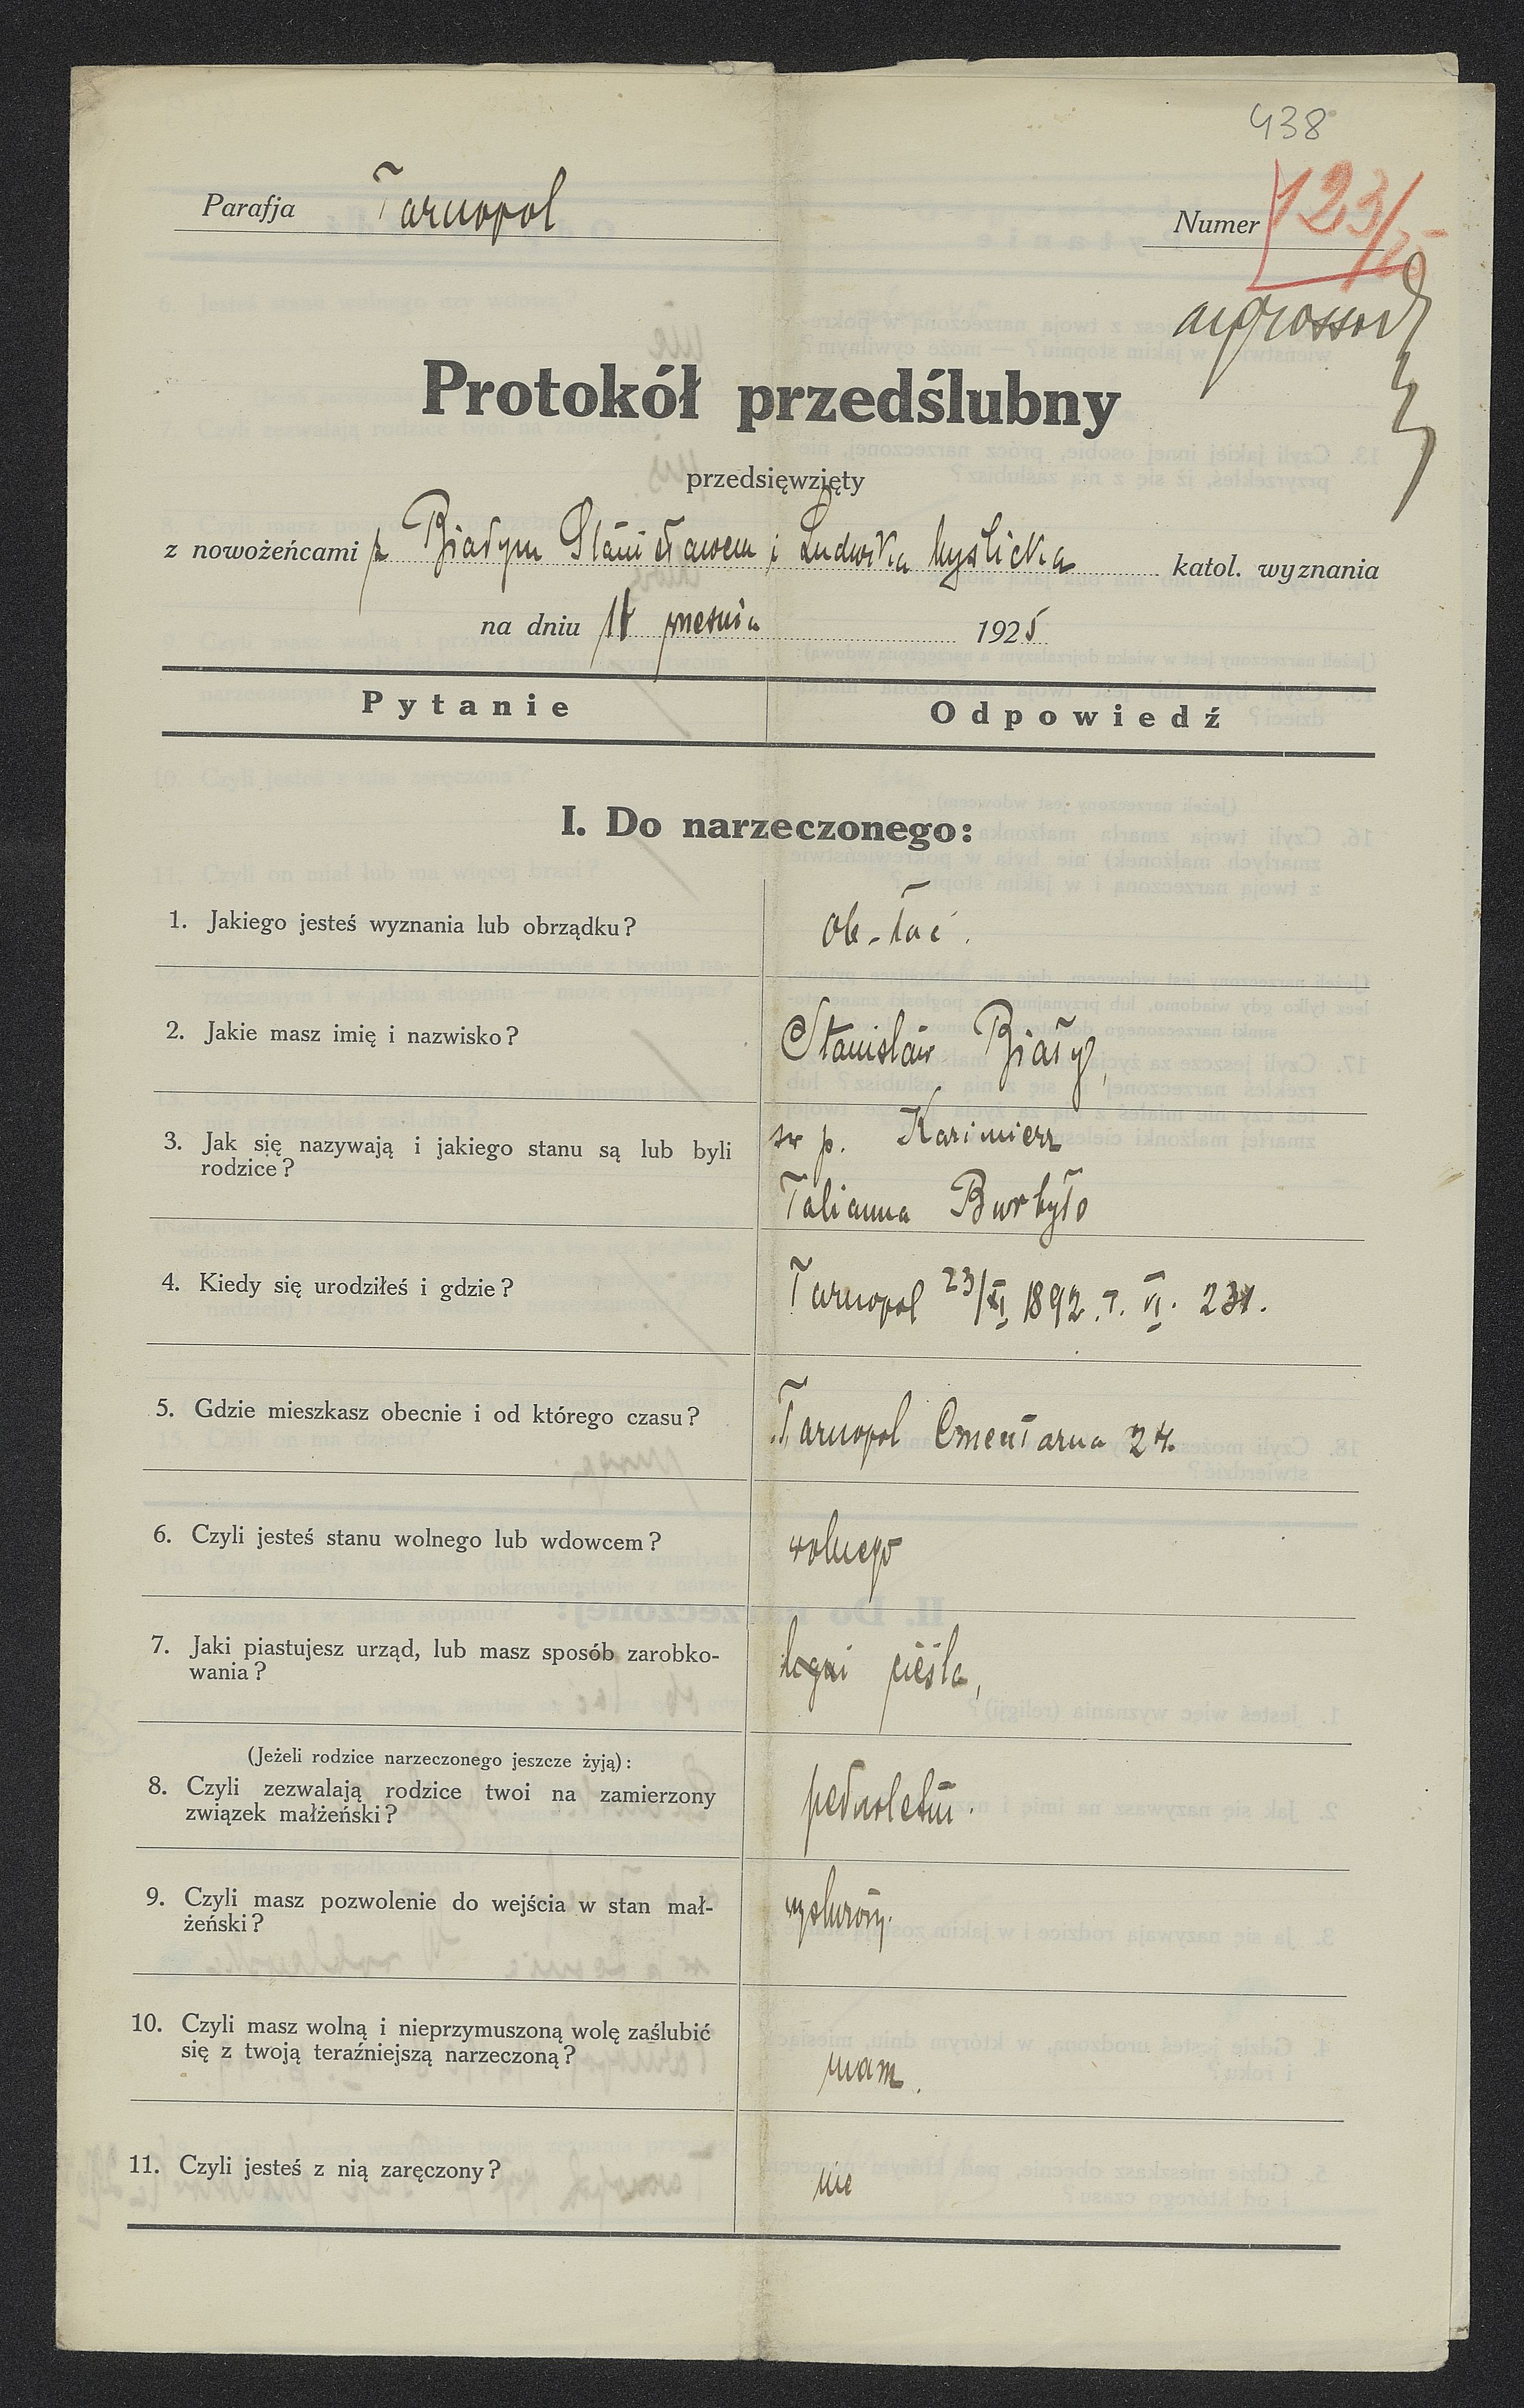 438
Parafja Tarnopol
Numer 123/25
Protokół przedślubny
przedsięwzięty
z nowożeńcami p Białym Stanisławem i Ludwika Myslicka katol. wyznania
na dniu 1925
Pytanie Odpowiedź
I. Do narzeczonego:
1. Jakiego jesteś wyznania lub obrządku? ob-łać.
2. Jakie masz imię i nazwisko? Stanisław Biały,
3. Jak się nazywają i jakiego stanu są lub byli
rodzice?
św p. Kazimierz
Tatianna Burbyło
4. Kiedy się urodziłeś i gdzie? Tarnopol 23/XI 1892. T. VI. 231.
5. Gdzie mieszkasz obecnie i od którego czasu? Tarnopol Cmentarna 24.
6. Czyli jesteś stanu wolnego lub wdowcem? wolnego
7. Jaki piastujesz urząd, lub masz sposób zarobko-
wania?
cieśla,
(Jeżeli rodzice narzeczonego jeszcze żyją):
8. Czyli zezwalają rodzice twoi na zamierzony
związek małżeński?
pełnoletni.
9. Czyli masz pozwolenie do wejścia w stan mał-
żeński?
wysłużony.
10. Czyli masz wolną i nieprzymuszoną wolę zaślubić
się z twoją teraźniejszą narzeczoną?
mam.
11. Czyli jesteś z nią zaręczony? nie